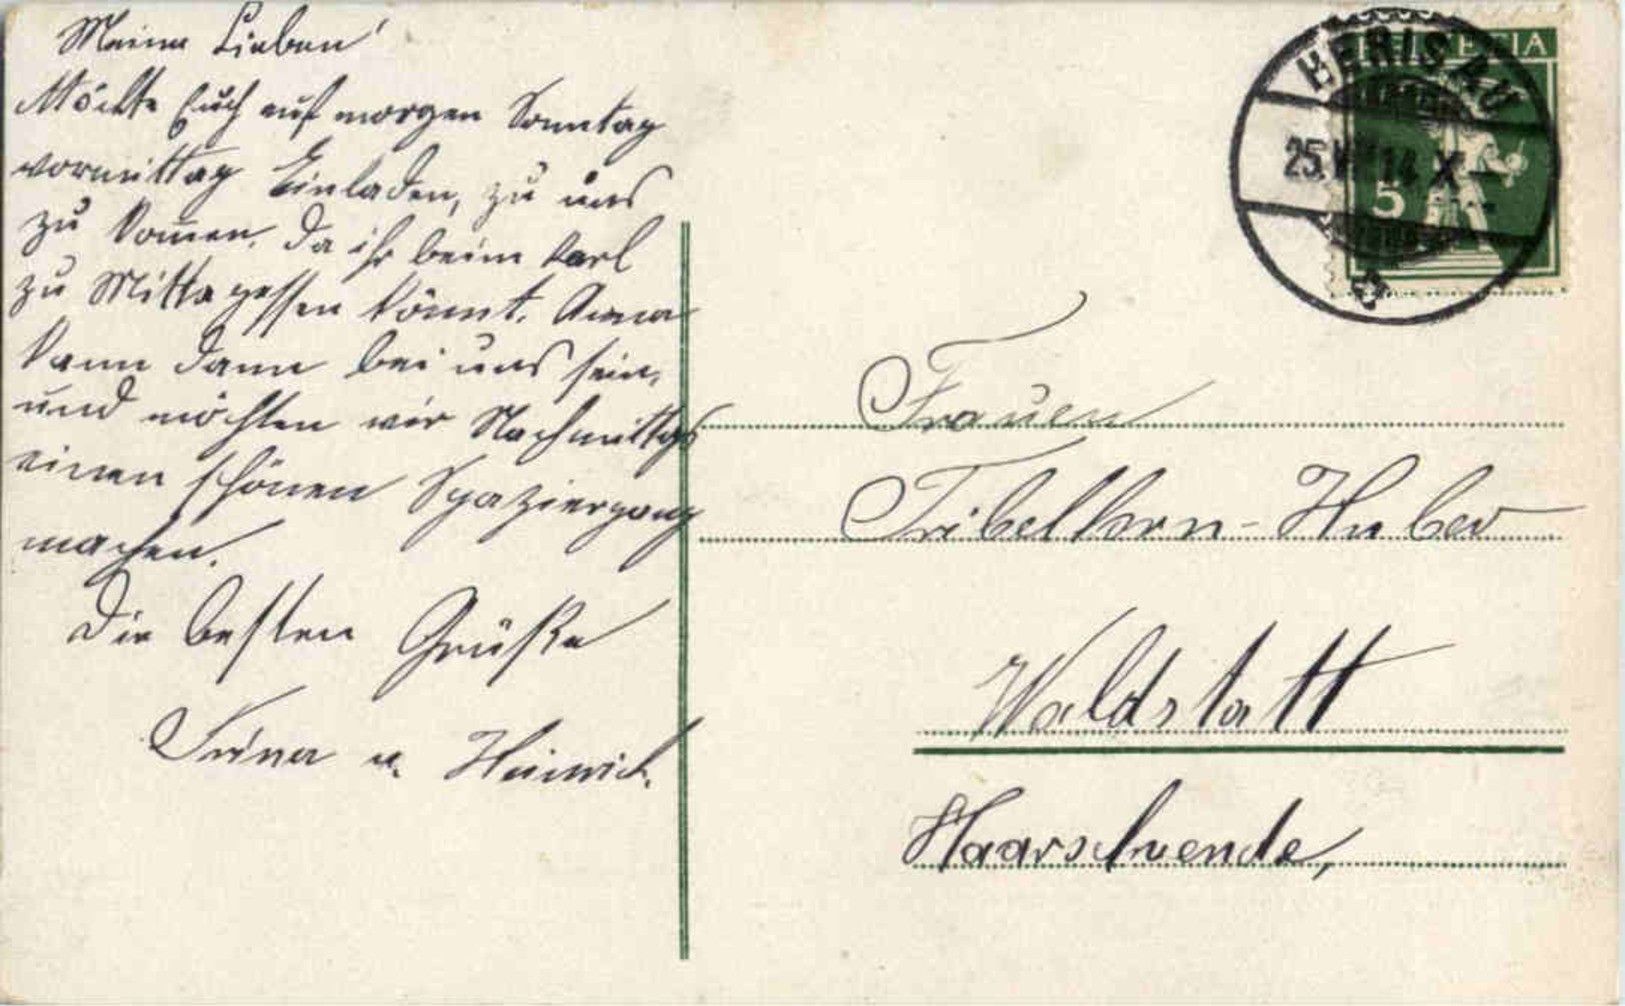 Meine Lieben!
Möchte Euch auf morgen Sonntag
vormittag Einladen, zu uns
zu kom̅en, da ihr beim Karl
zu Mittagessen könnt. Anna
kann dann bei uns sein,
und möchten wir Nachmittags
einen schönen Spaziergang
machen.
Die besten Grüße
Trina u. Heinrich.
HELVETIA
HERISAU
25.V 14 X
5
Frauen
Tribelhorn-Huber
Waldstatt
Haarschwende,